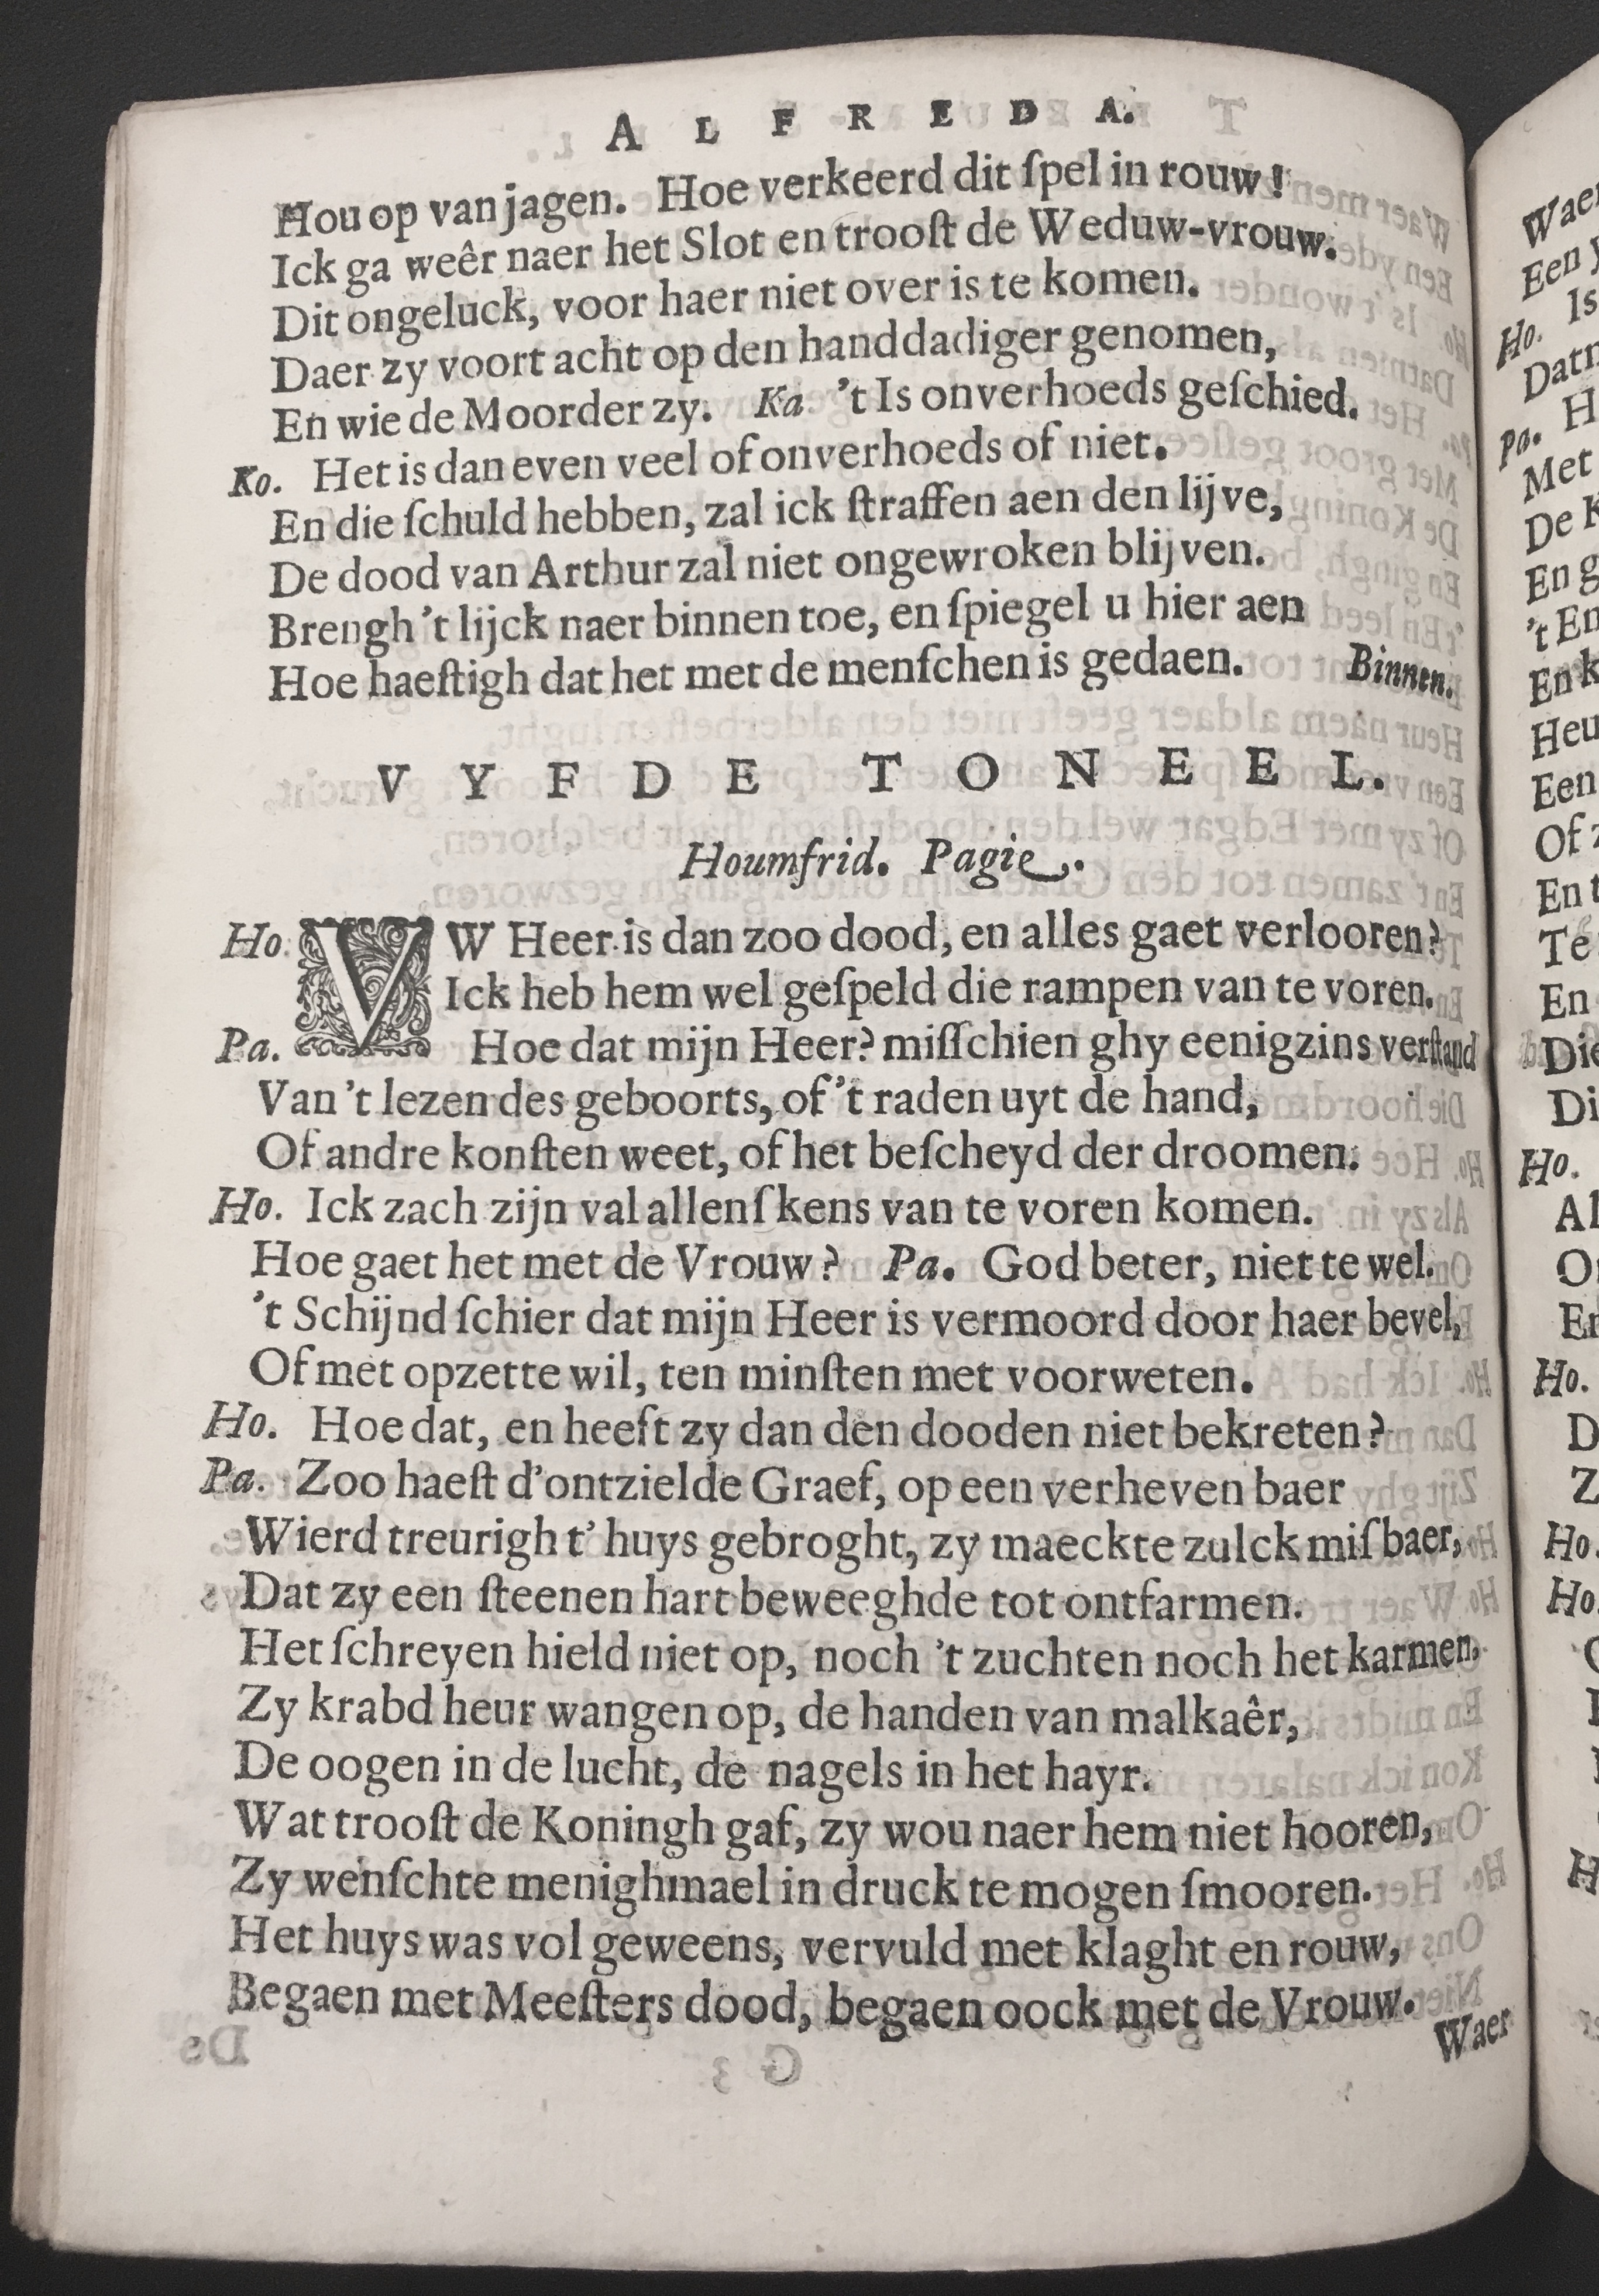 ALFREDA.
Hou op van jagen. Hoe verkeerd dit ſpel in rouw!
Ick ga weêr naer het Slot en trooſt de Weduw-vrouw.
Dit ongeluck, voor haer niet over is te komen.
Daer zy voort acht op den handdadiger genomen,
En wie de Moorder zy. Ka 't Is onverhoeds geſchied.
Ko. Het is dan even veel of onverhoeds of niet.
En die ſchuld hebben, zal ick ſtraffen aen den lijve,
De dood van Arthur zal niet ongewroken blijven.
Brengh 't lijck naer binnen toe, en ſpiegel u hier aen
Hoe haeſtigh dat het met de menſchen is gedaen. Binnen.
VYFDE TONEEL.
Houmfrid. Pagie.
Ho. VW Heer is dan zoo dood, en alles gaet verlooren?
Ick heb hem wel geſpeld die rampen van te voren.
Pa. Hoe dat mijn Heer? miſſchien ghy eenigzins verſtand
Van 't lezen des geboorts, of 't raden uyt de hand,
Of andre konſten weet, of het beſcheyd der droomen.
Ho. Ick zach zijn val allenſkens van te voren komen.
Hoe gaet het met de Vrouw? Pa. God beter, niet te wel.
't Schijnd ſchier dat mijn Heer is vermoord door haer bevel,
Of met opzette wil, ten minſten met voorweten.
Ho. Hoe dat, en heeft zy dan den dooden niet bekreten?
Pa. Zoo haeſt d'ontzielde Graef, op een verheven baer
Wierd treurigh t' huys gebroght, zy maeckte zulck miſbaer,
Dat zy een ſteenen hart beweeghde tot ontfarmen.
Het ſchreyen hield niet op, noch 't zuchten noch het karmen.
Zy krabd heur wangen op, de handen van malkaêr,
De oogen in de lucht, de nagels in het hayr.
Wat trooſt de Koningh gaf, zy wou naer hem niet hooren,
Zy wenſchte menighmael in druck te mogen ſmooren.
Het huys was vol geweens, vervuld met klaght en rouw,
Begaen met Meeſters dood, begaen oock met de Vrouw.
Waer
Waer
Een
Ho. Is
Datn
Pa. H
Met
De K
En g
't En
En k
Heu
Een
Of z
En t
Te
En
Die
Di
Ho.
Al
En
Ho.
D
Z
Ho.
Ho.